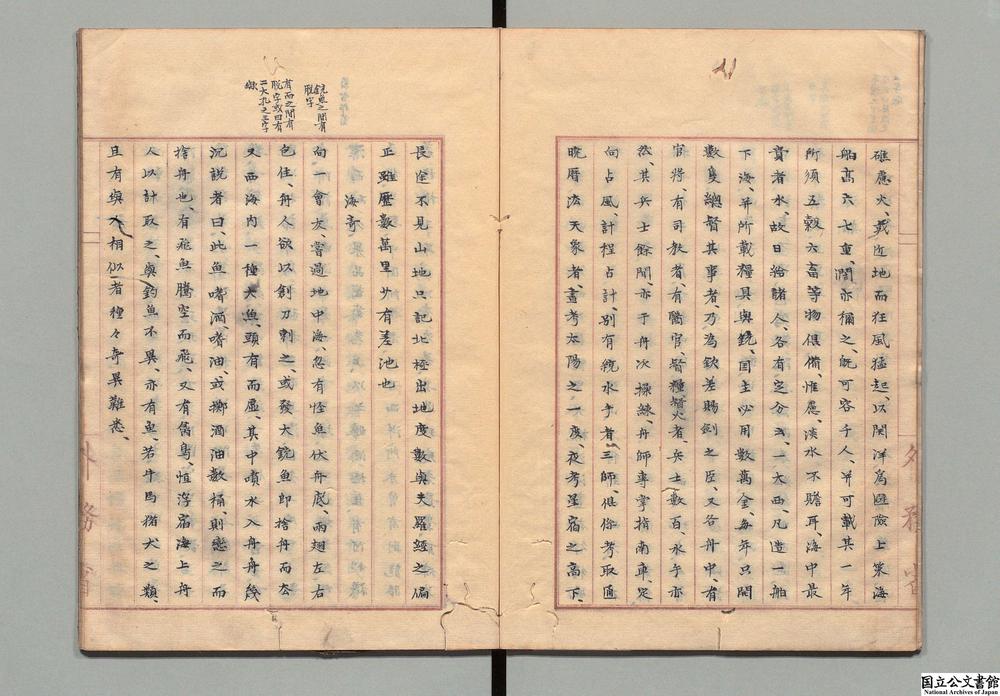 礁慮火、或近地而狂風猛起、以闊洋為匪險上策海
舶高六七重、闊亦稱之、既可容千人、并可載其一年
所須五穀六畜等物俱備、惟慮、淡水不贍耳、海中最
貴者水、故日給諸人、各有定分云、一大西、凡造一舶
下海、并所載糧具與銃、国主必用數萬金、每年只開
數隻總督其事者、乃為欽差賜劍之臣、又各舟中、有
官将、有司教者、有醫官、督糧督火者、兵士數百、水手亦
然、其兵士餘閒、亦于舟次操練、舟師專掌指南車、定
向占風、計程占計、別有親水手者、三師、俱係考取通
曉曆法天象者、晝考太陽之一度、夜考星宿之高下、
長途不見山地只記北極出地度數與夫羅經之偏
正雖歷數萬里少有差池也
海奇
向一會友、當過地中海、忽有怪魚伏舟底、兩翅左右
包住、舟人欲以劍刀刺之、或發大銃魚即捨舟而去
又西海内一種大魚、頭有而虛、其中噴水入舟舟幾
沉說者曰、此魚嗜酒、嗜油、或擲酒油數桶、則戀之而
捨舟也、有飛魚騰空而飛、又有禽鳥、恒浮宿海上舟
人以計取之、與釣魚不異、亦有魚、若牛馬猫犬之類、
且有與人相似者種々奇異難悉、
銃魚之間有
脱字
有而之間有
脱字或曰有
二大孔之三字
歟
外務省
外務省
国立公文書館
National Archives of Japan